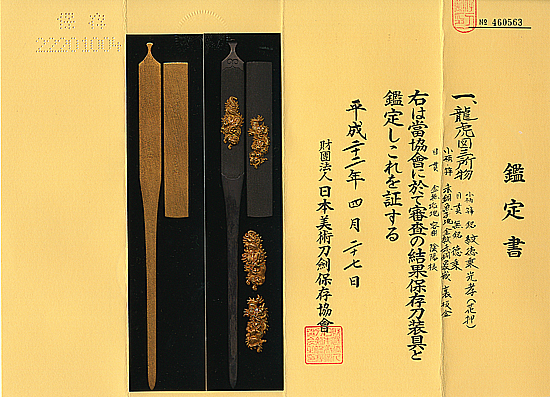 № 460563
鑑定書
一、龍虎図三所物
小柄 笄 銘 紋徳乗光孝(花押)
目貫 無銘 徳乗
小柄 笄 赤銅魚子地 裏板金
目貫 金無垢地 容彫 陰陽根
右は當協會に於て審査の結果保存刀装具と
鑑定しこれを証する
平成二十二年 四月 二十七日
財團法人 日本美術刀劍保存協會
保存
22201004